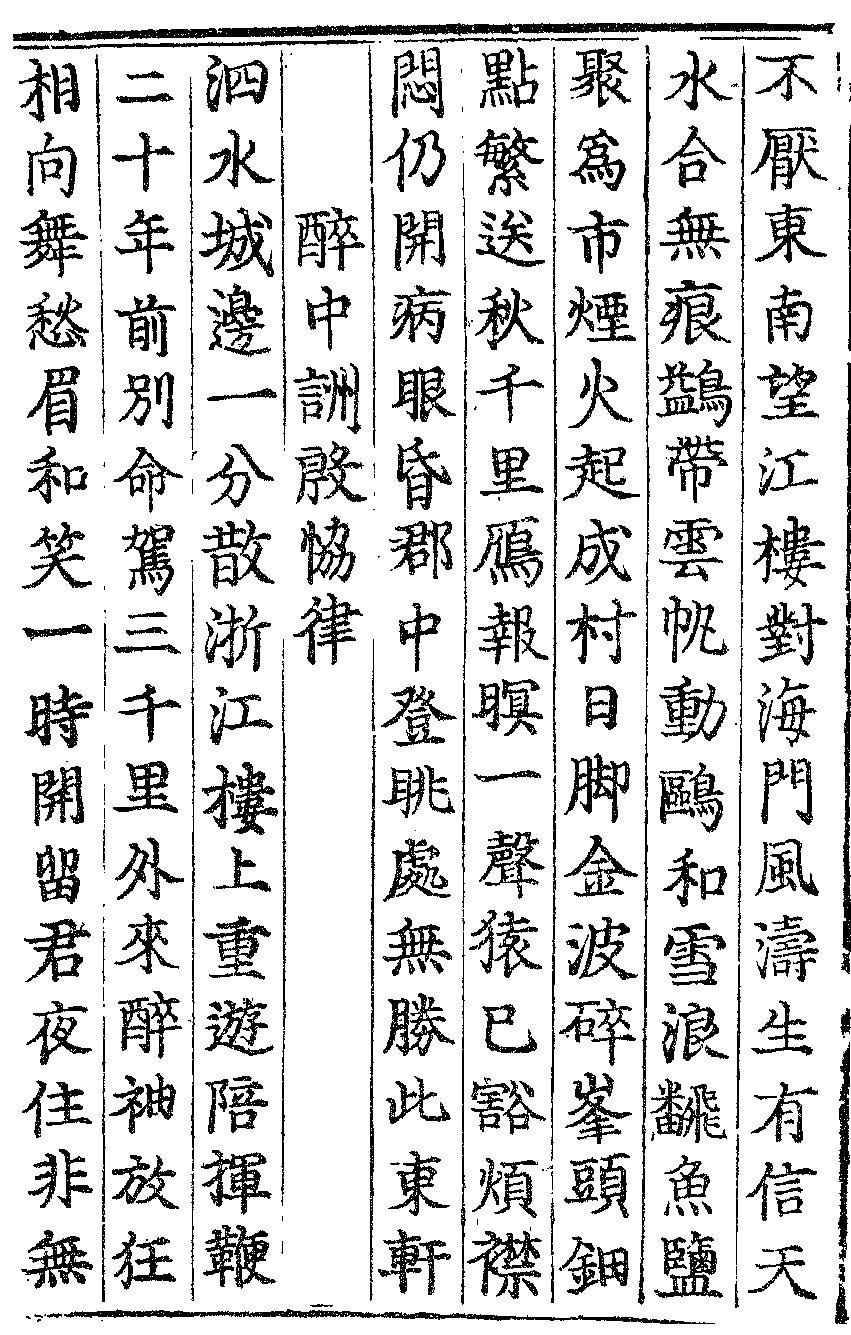 不厭東南望江樓對海門風濤生有信天
水合無痕鷁帶雲帆動鷗和雪浪飜魚鹽
聚爲市煙火起成村日脚金波碎峯頭鈿
點繁送秋千里鴈報暝一聲猿已豁煩襟
悶仍開病眼昏郡中登眺處無勝此東軒
醉中詶殷恊律
泗水城邊一分散浙江樓上重遊陪揮鞭
二十年前別命駕三千里外來醉袖放狂
相向舞愁眉和笑一時開留君夜住非無